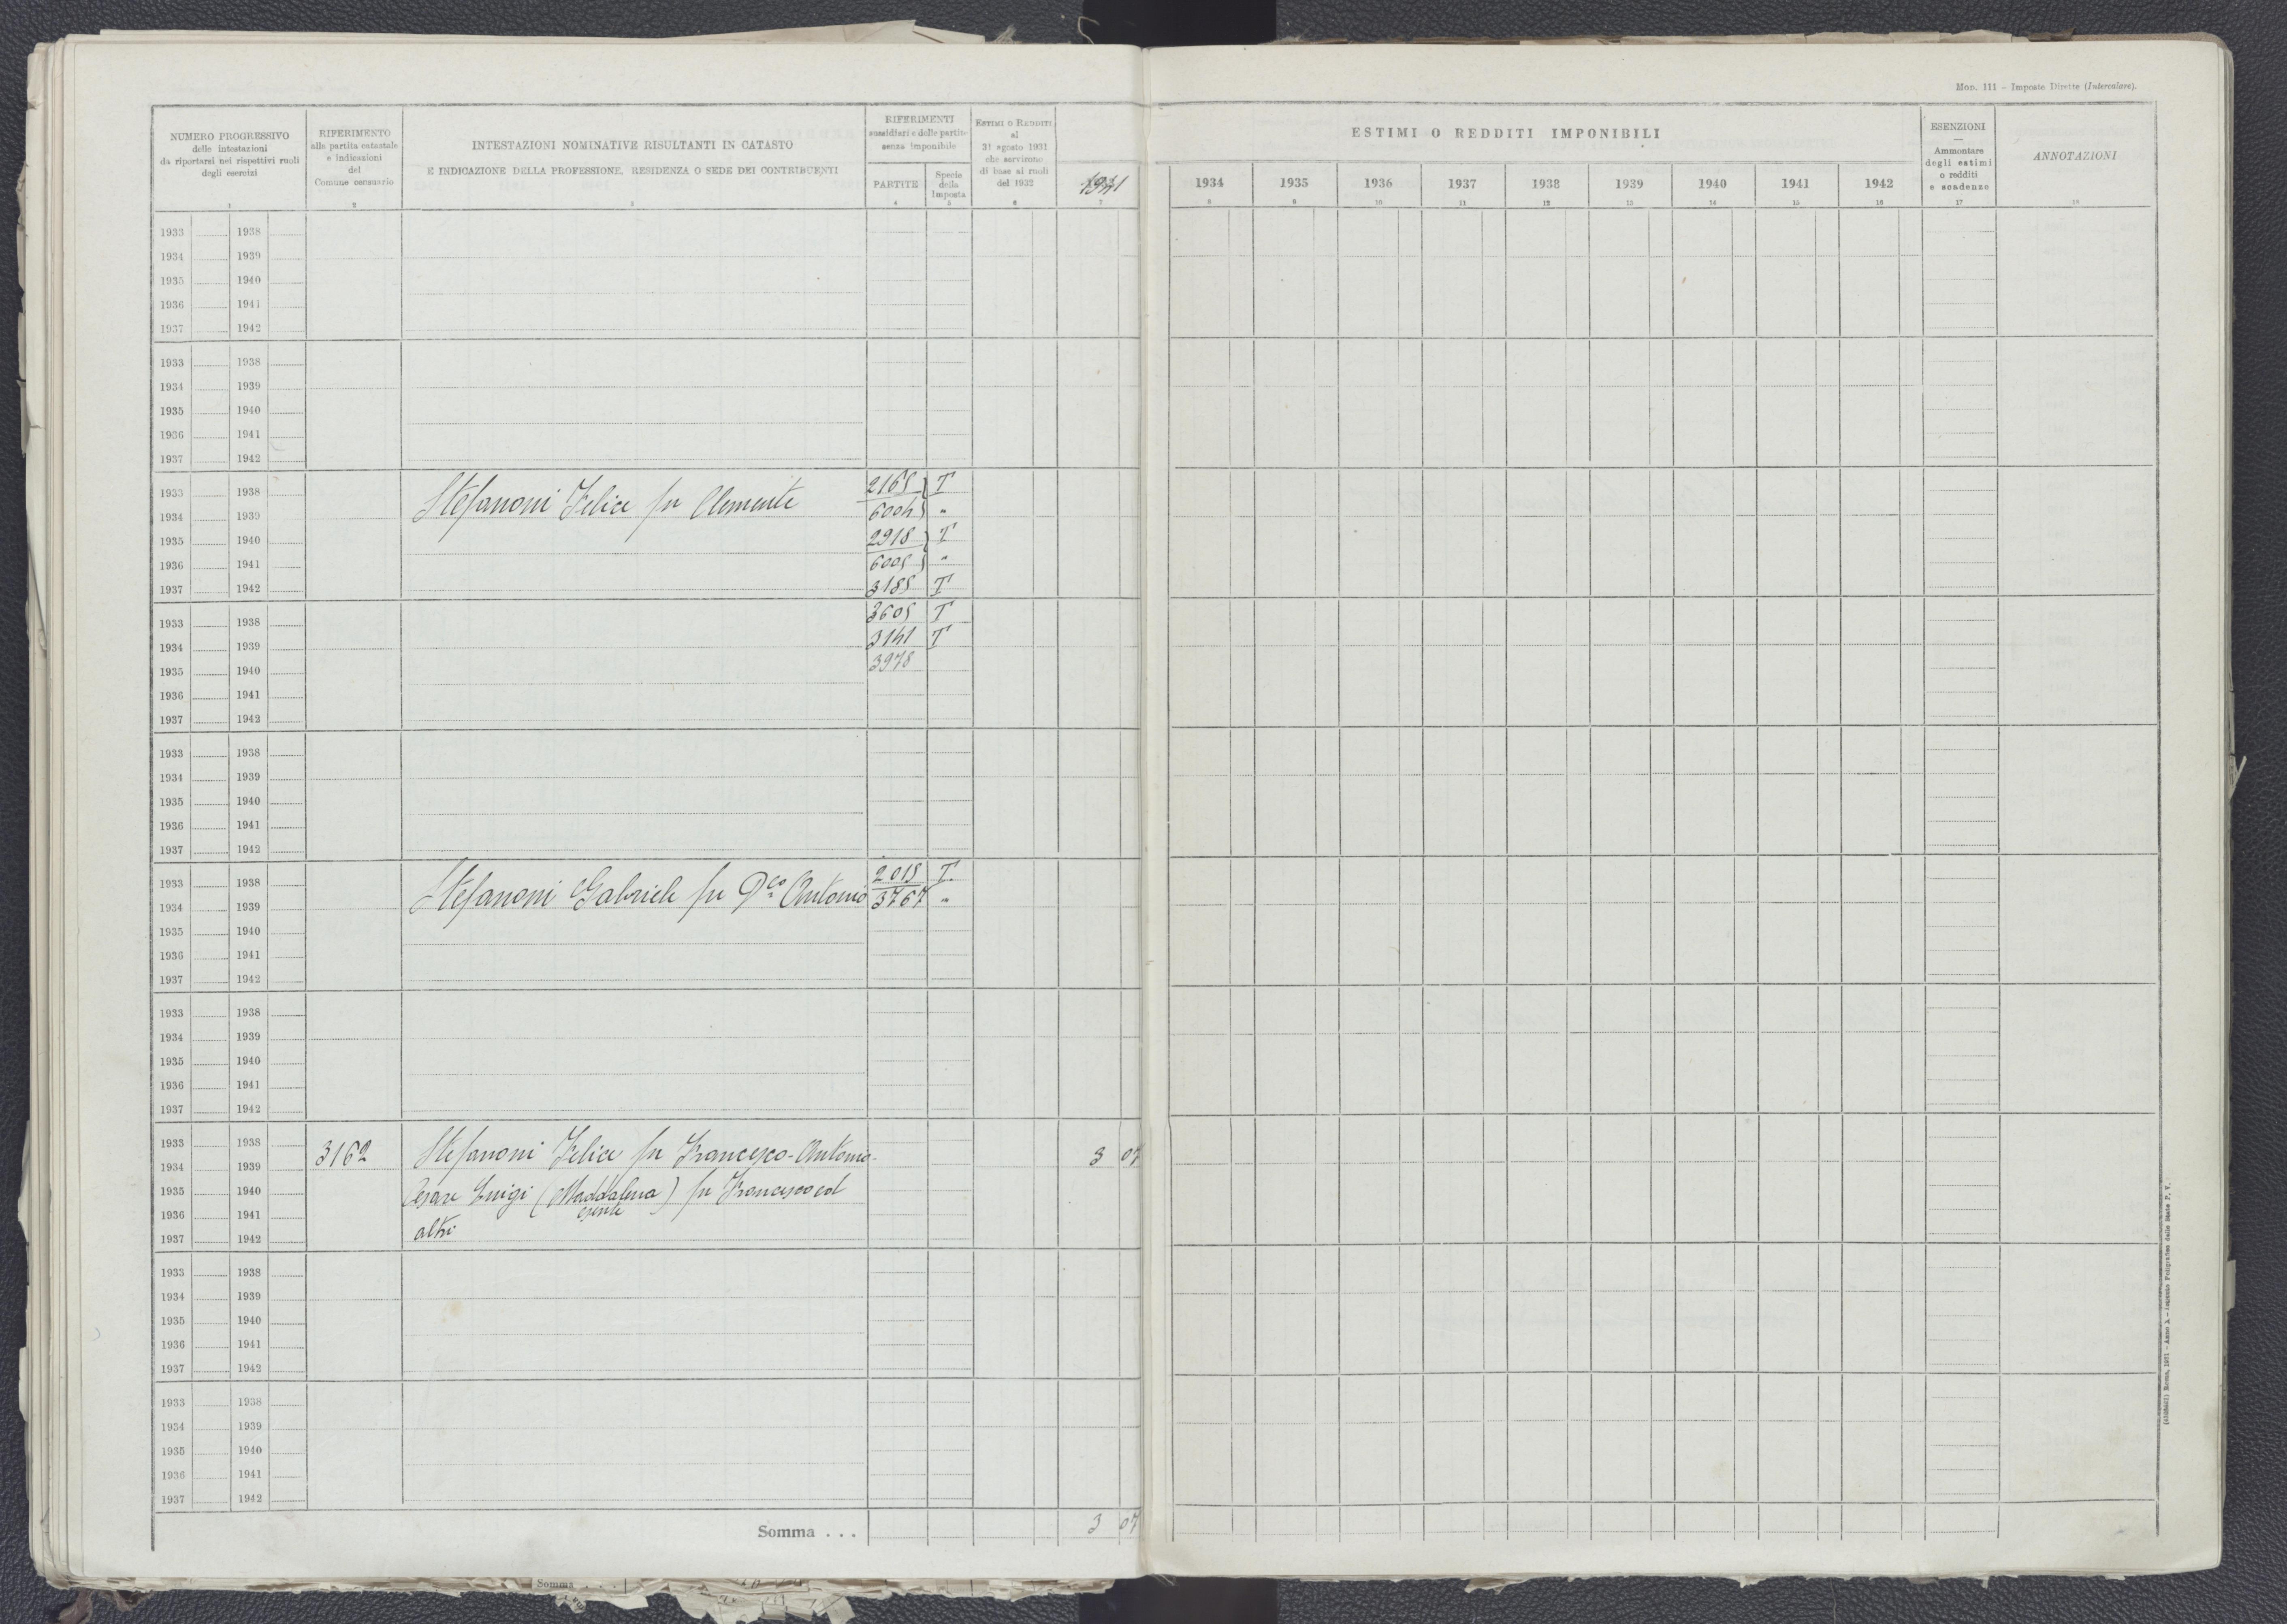 Mod. 111 - Imposte Dirette (Intercalare).
NUMERO PROGRESSIVO
delle intestazioni
da riportarsi nei rispettivi ruoli
degli esercizi
1
RIFERIMENTO
alla partita catastale
e indicazioni
del
Comune censuario
2
INTESTAZIONI NOMINATIVE RISULTANTI IN CATASTO
E INDICAZIONE DELLA PROFESSIONE, RESIDENZA O SEDE DEI CONTRIBUENTI
3
RIFERIMENTI
sussidiari e delle partite
senza imponibile
PARTITE
4
Specie
della
Imposta
5
ESTIMI O REDDITI
al
31 agosto 1931
che servirono
di base ai ruoli
del 1932
6
7
ESTIMI O REDDITI IMPONIBILI
1934 1935 1936 1937 1938 1939 1940 1941 1942
8 9 10 11 12 13 14 15 16
ESENZIONI
Ammontare
degli estimi
o redditi
e scadenze
17
ANNOTAZIONI
18
1933 1938
1934 1939
1935 1940
1936 1941
1937 1942
1933 1938
1934 1939
1935 1940
1936 1941
1937 1942
1933 1938 2165 T
1934 1939 Stefanoni Felice fu Clemente 6004 "
1935 1940 2918 T
1936 1941 6005 "
1937 1942 3185 T
1933 1938 3605 T
1934 1939 3141 T
1935 1940 3978
1936 1941
1937 1942
1933 1938
1934 1939
1935 1940
1936 1941
1937 1942
1933 1938 2015 T
1934 1939 Stefanoni Gabriele fu Dco Antonio 3767 "
1935 1940
1936 1941
1937 1942
1933 1938
1934 1939
1935 1940
1936 1941
1937 1942
1933 1938 3162 Stefanoni Felice fu Francesco-Antonio- 3 07
1934 1939
1935 1940 Cesare Luigi (Maddalena) fu Francesco ed
1936 1941
1937 1942 altri
1933 1938
1934 1939
1935 1940
1936 1941
1937 1942
1933 1938
1934 1939
1935 1940
1936 1941
1937 1942
Somma . . . 3 07
Somma . . .